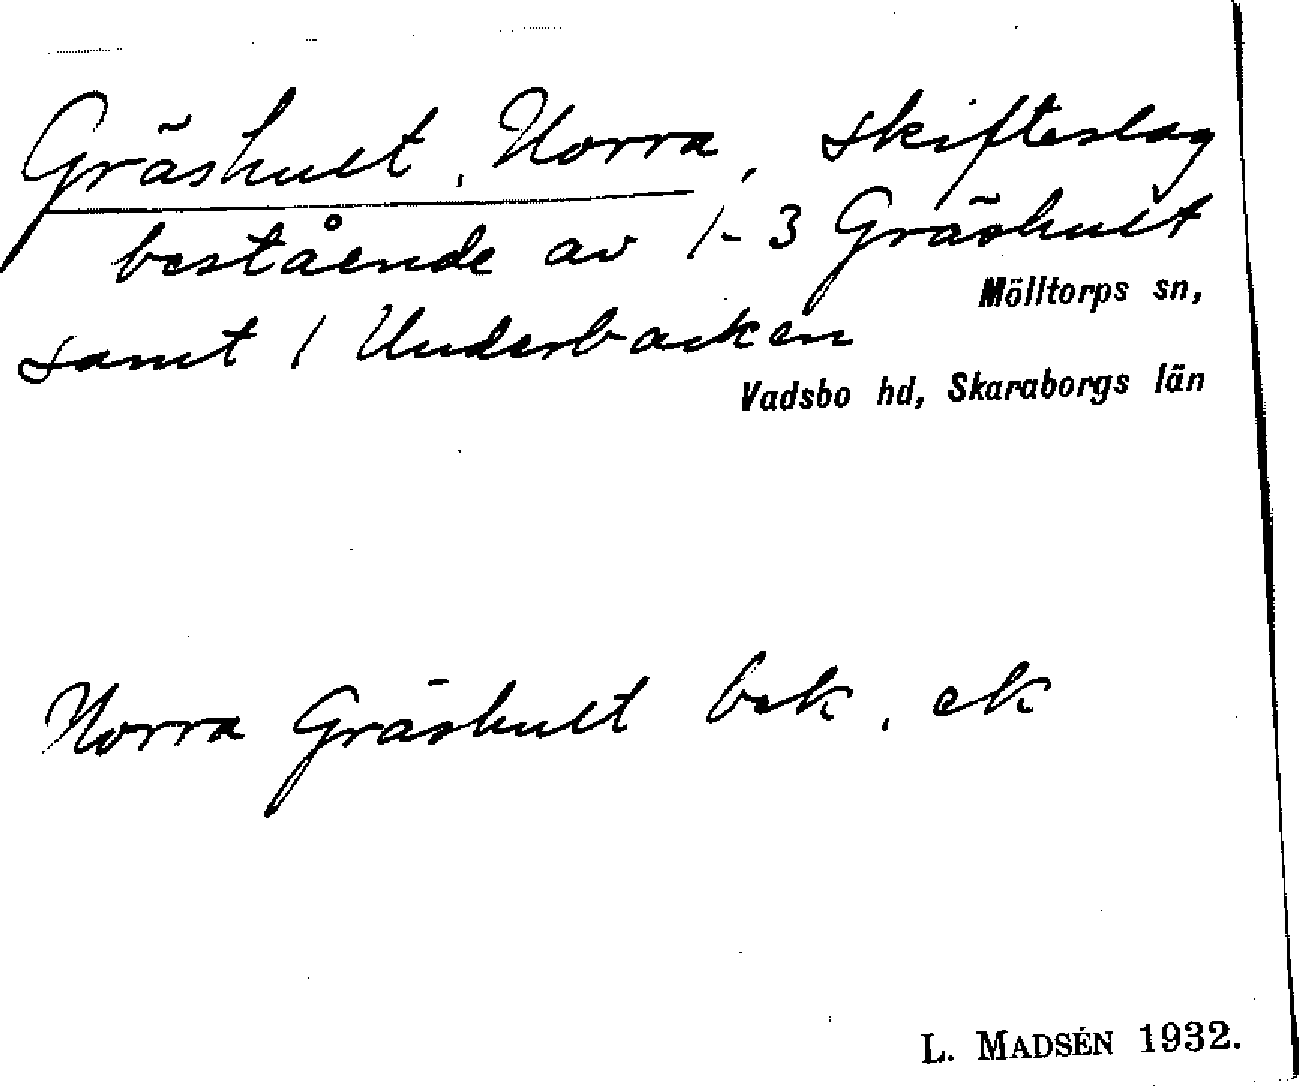 Gräshult, Norra, skifteslag
bestående av 1-3 Gräshult
Mölltorps sn,
samt 1 Underbacken
Vadsbo hd, Skaraborgs län
Norra Gräshult bek. ek
L. MADSÉN 1932.